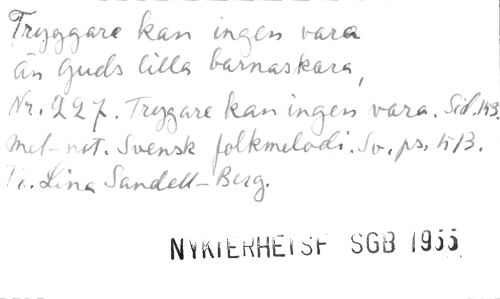 Tryggare kan ingen vara
än Guds lilla barnaskara,
Nr. 227. Tryggare kan ingen vara. Sid. 143.
mel-not. Svensk folkmelodi. Sv. ps. 513.
Lina Sandell-Berg.
NYKTERHETSF SGB 1955